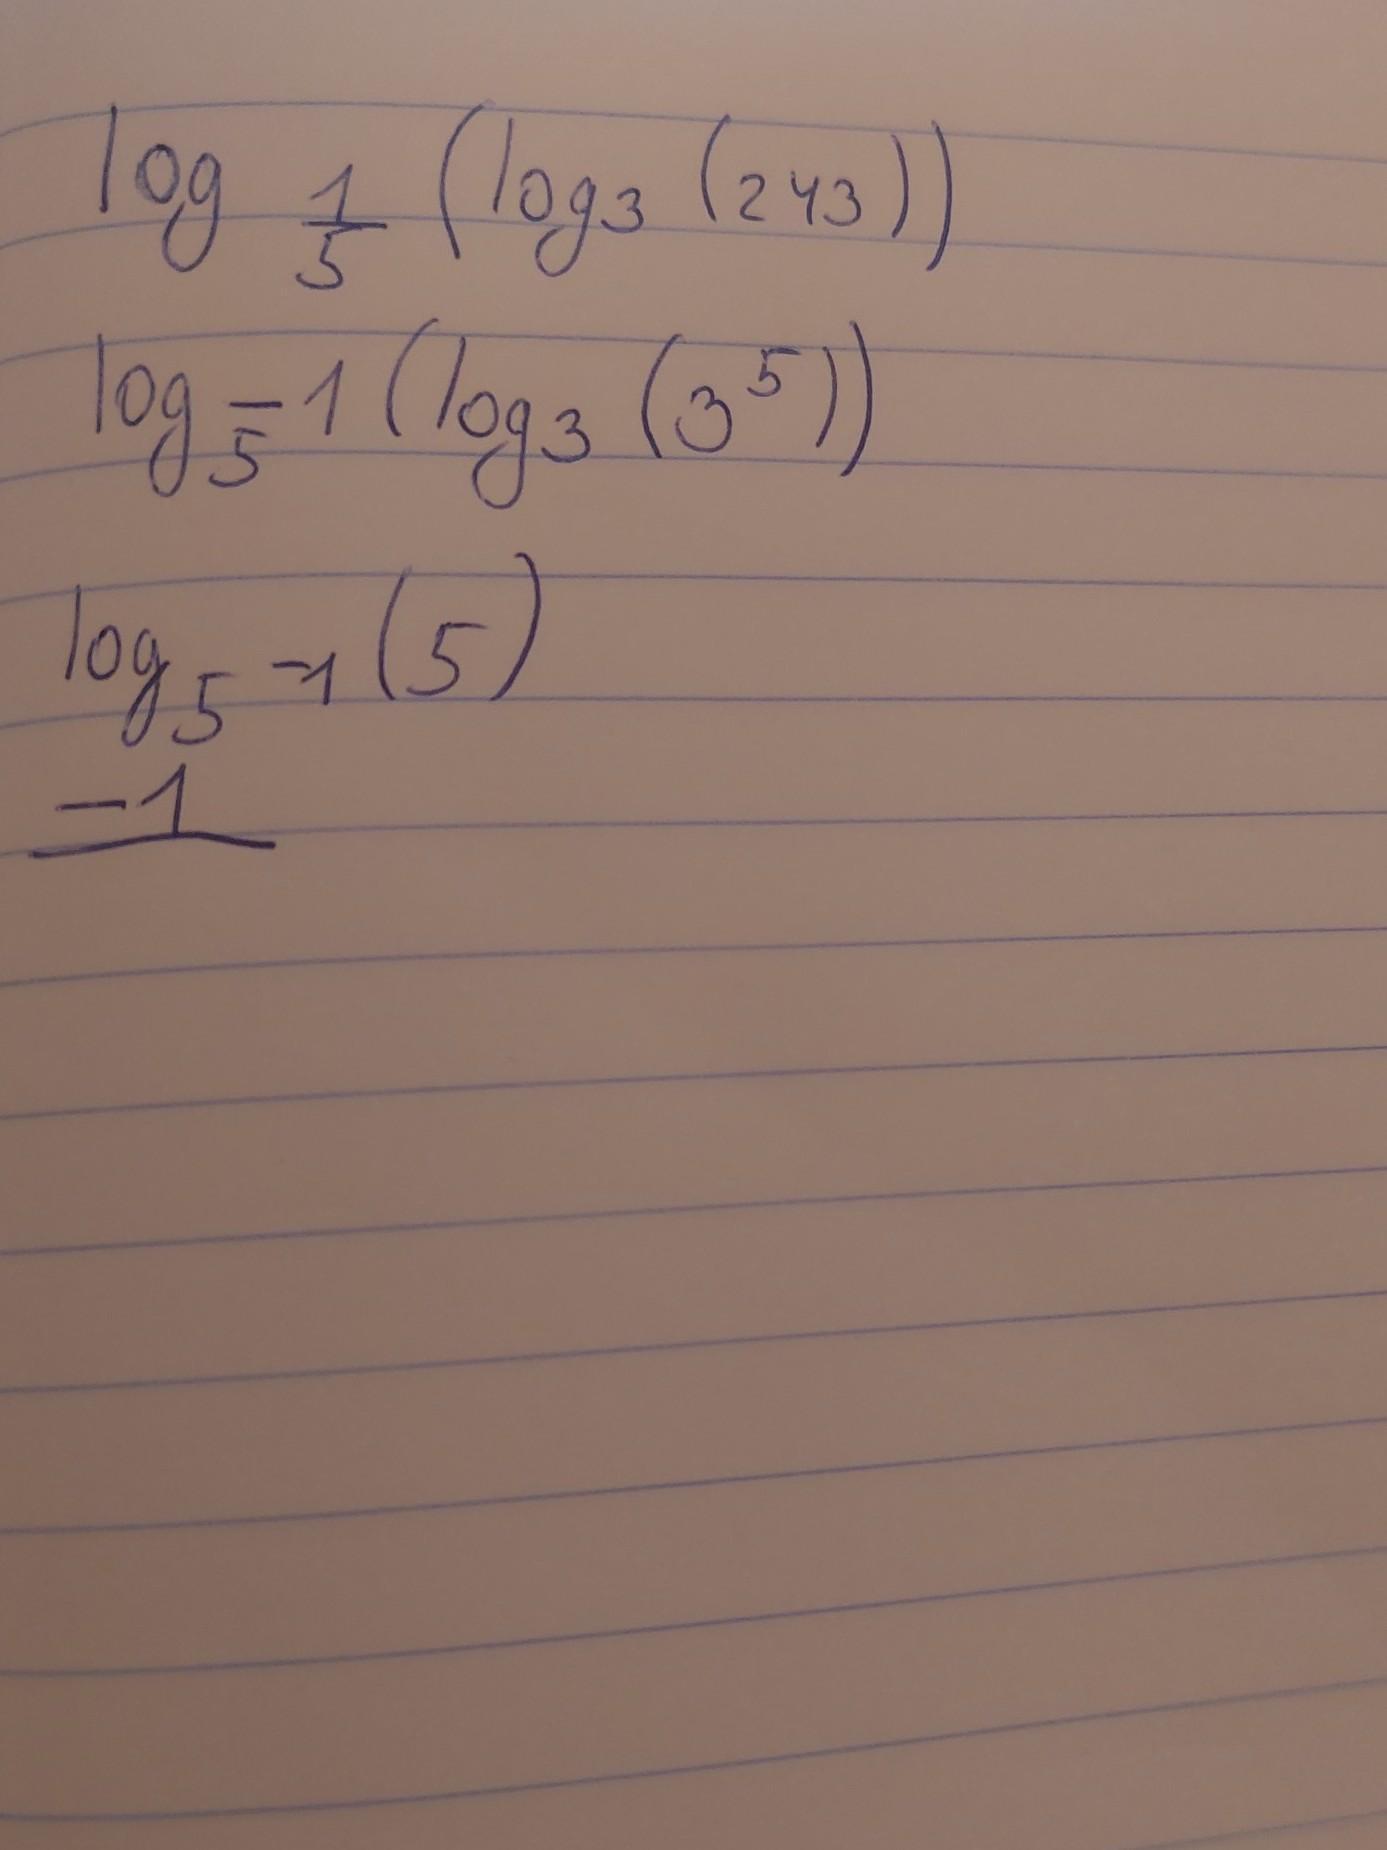 log 1/5 (log₃ (243))
log₅⁻¹ (log₃ (3⁵))
log₅⁻¹ (5)
-1